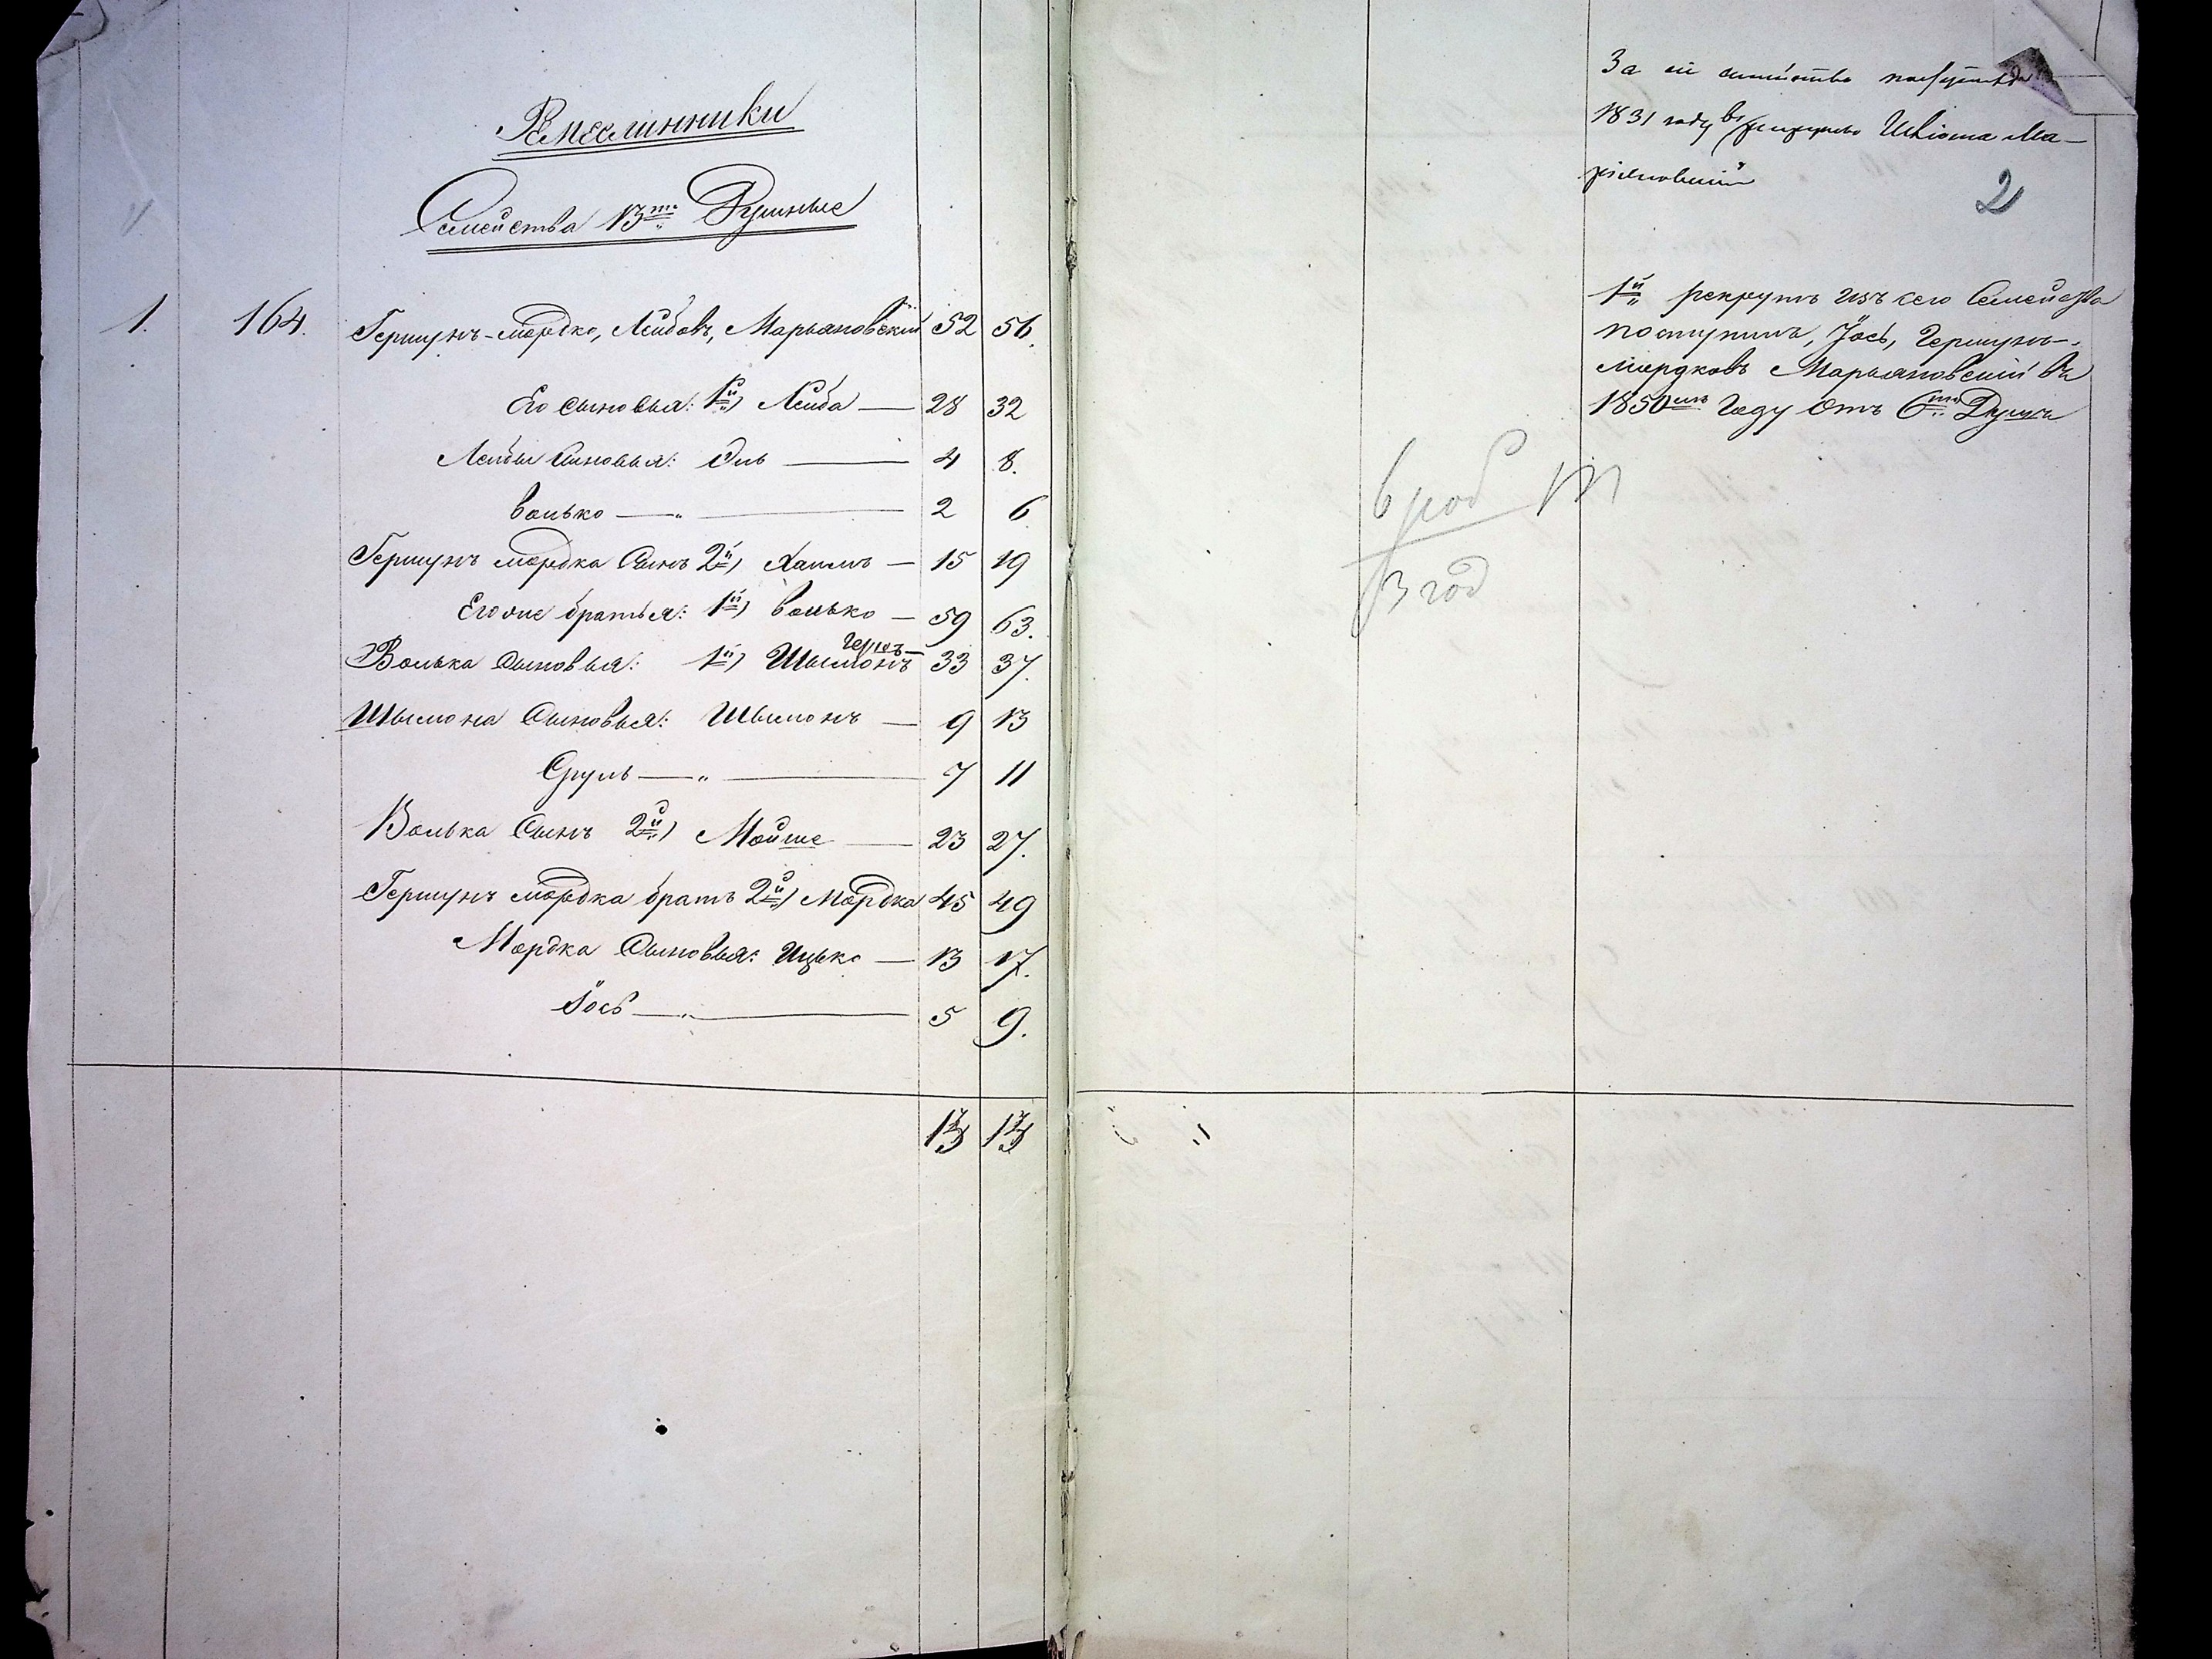 Ремеслинники
Семейства 13ти Душные
1. 164. Гершунъ-мордко, Лейбовъ, Марьяновскій 52 56.
Его сыновья: 1й) Лейба — 28 32
Лейбы сыновья: Эль — 4 8.
Волько — „ — 2 6
Гершунъ мордка сынъ 2й) Хаимъ — 15 19
Его же братья: 1й) Волько — 59 63.
Гершъ-
Волька сыновья: 1й) Шымонъ 33 37.
Шымона сыновья: Шымонъ — 9 13
Сруль — „ — 7 11
Волька сынъ 2й) Мойше — 23 27.
Гершунъ мордка братъ 2й) Мордка 45 49
Мордка сыновья: Ицько — 13 17.
Іось — „ — 5 9.
13 13
За сіе семейство
1831 году въ рекруты Ма-
ріяновскій
2
1й рекрутъ изъ сего Семейства
поступилъ, Іось, Гершунъ-
мордковъ Марьяновскій въ
1850мъ году отъ 6ти Душъ
6 роб
3 год